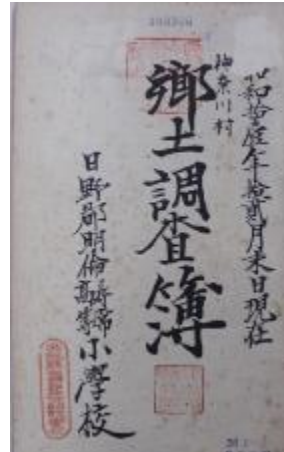 昭和拾壹年拾貳月末日現在
神奈川村
鄕土調査簿
日野郡明倫尋常高等小學校